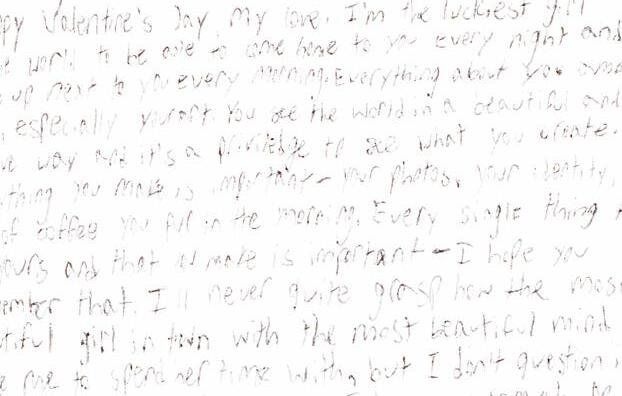 ppy Valentine's Day, my love. I'm the luckiest girl
world to be able to come home to you every night and
up next to you every morning. Everything about you
, especially your art. You see the world in a beautiful and
way and it's a priviledge to see what you create.
thing you make is important - your photos, your identity,
of coffee you put in the morning. Every single thing
yours and that you make is important - I hope you
ember that. I'll never quite grasp how the mos
tiful girl in town with the most beautiful mind
me to spend her time with, but I don't question i